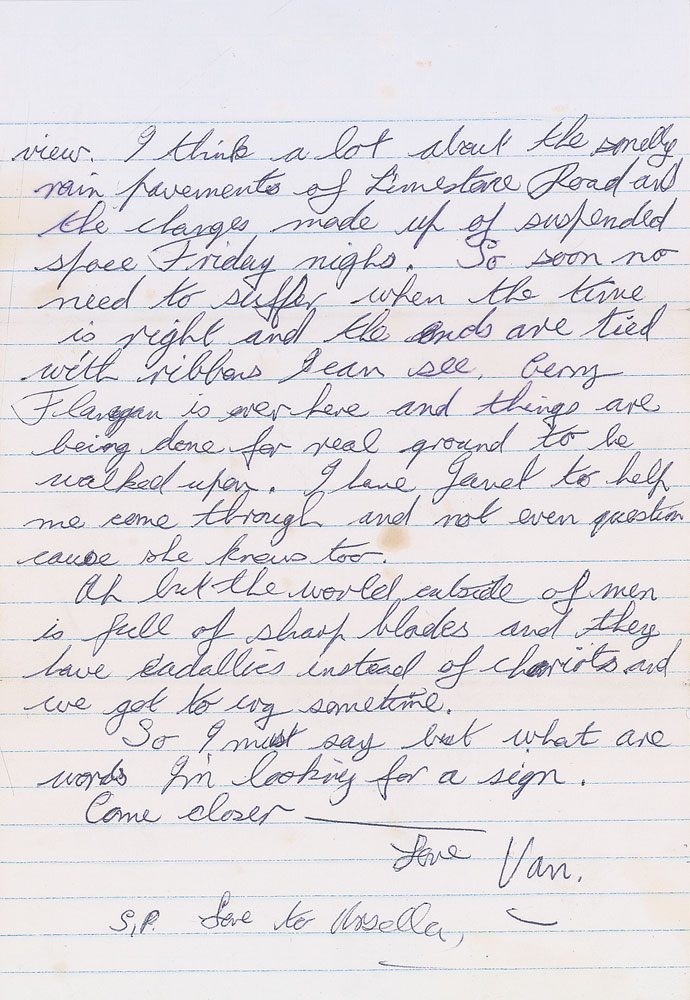 view. I think a lot about the smelly
rain pavements of Limestone Road and
the changes made up of suspended
space Friday nighs. So soon no
need to suffer when the time
is right and the ends are tied
with ribbons I can see. Gerry
Flanagan is over here and things are
being done for real ground to be
walked upon. I have Janet to help
me come through and not even question
cause she knows too.
Ah but the world outside of men
is full of sharp blades and they
have cadallics instead of chariots and
we got to wg sometime.
So I must say but what are
words I'm looking for a sign.
Come closer
Love Van.
S.P. Love to Ursella,